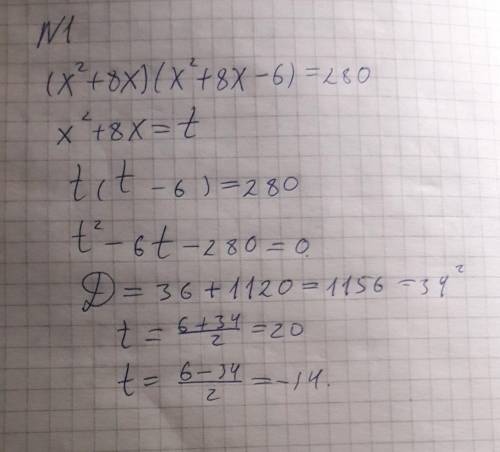 N1
(x²+8x)(x²+8x-6)=280
x²+8x=t
t(t-6)=280
t²-6t-280=0.
D=36+1120=1156=34²
t=\frac{6+34}{2}=20
t=\frac{6-34}{2}=-14.